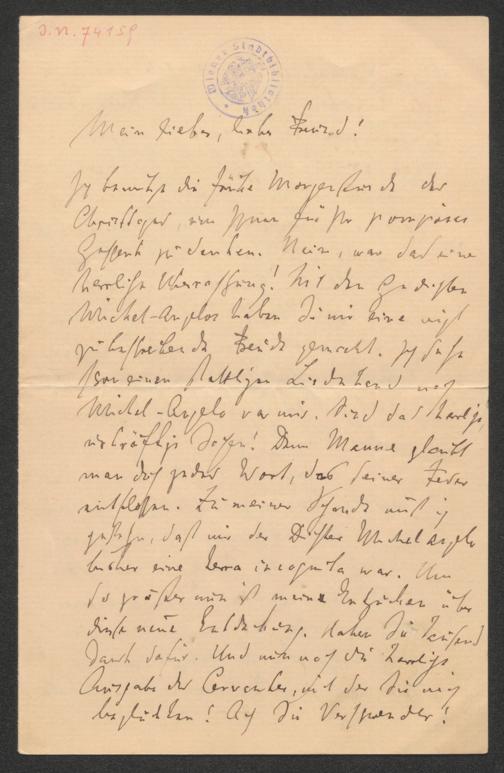 J.N. 74159
Wiener Stadtbibliothek
Mein lieber, lieber Freund!
Ich benütze die frühe Morgenstunde des
Christtages, um Ihnen für Ihr pompöses
Geschenk zu danken. Nein, war das eine
herrliche Überraschung! Mit den Gedichten
Michel-Angelos haben Sie mir eine nicht
zu beschreibende Freude gemacht. Ich sehe
schon einen stattlichen Liederband nach
Michel-Angelo vor mir. Sind das herrliche,
urkräftige Sachen! Dem Manne glaubt
man doch jedes Wort, das seiner Feder
entflossen. Zu meiner Schande muß ich
gestehn, daß mir der Dichter Michelangelo
bisher eine terra incognita war. Um
so größer nun ist meine Entzücken über
diese neue Entdeckung. Haben Sie tausend
Dank dafür. Und nun noch die herrliche
Ausgabe des Cervantes, mit der Sie mich
beglückten! Ach Sie Verschwender!